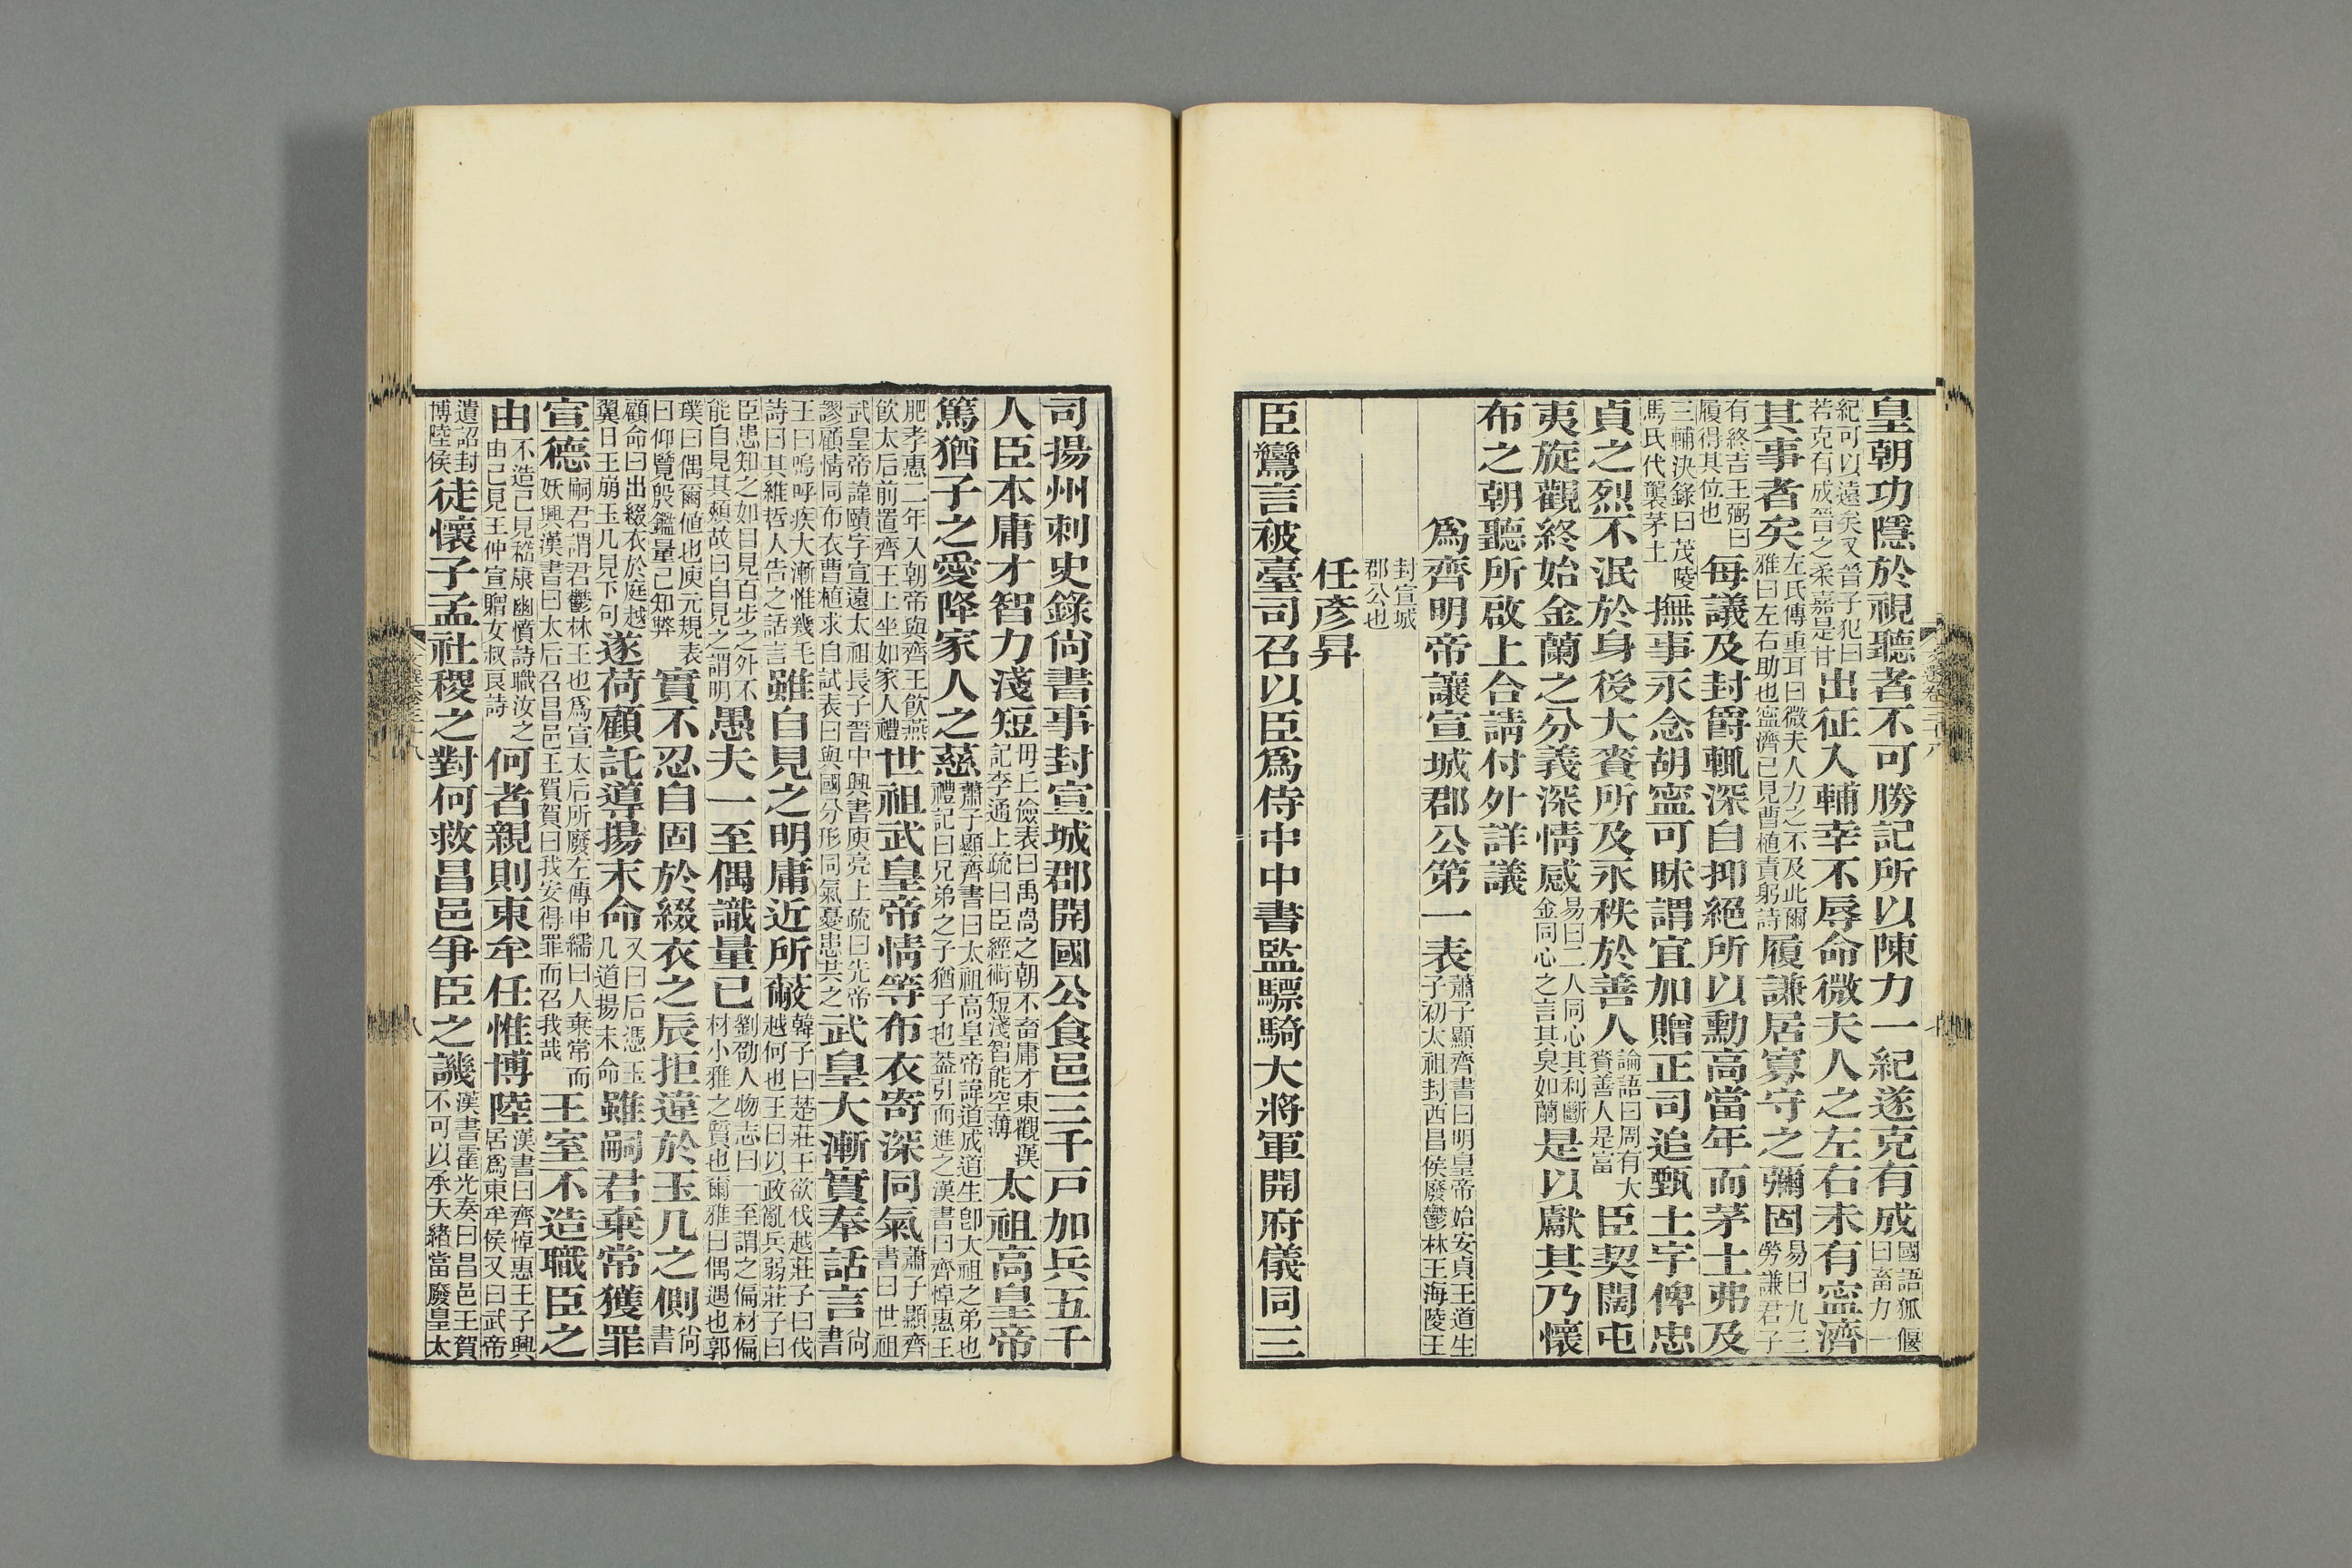 皇朝功隱於視聽者不可勝記所以陳力一紀遂克有成國語狐偃曰畜力一
紀可以遠矣又晉子犯曰若克有成晉之柔嘉是甘出征入輔幸不辱命微夫人之左右未有寍濟
其事者矣左氏傳重耳曰微夫人力之不及此爾雅曰左右助也寍濟已見曹植責躬詩履謙居寡守之彌固易曰九三勞謙君子
有終吉王弼曰履得其位也每議及封爵輒深自抑絕所以勳高當年而茅土弗及
三輔決錄曰茂陵馬氏代襲茅土撫事永念胡寍可昧謂宜加贈正司追甄土宇俾忠
貞之烈不泯於身後大賚所及永秩於善人論語曰周有大賚善人是富臣契闊屯
夷旋觀終始金蘭之分義深情感易曰二人同心其利斷金同心之言其臭如蘭是以獻其乃懷
布之朝聽所啟上合請付外詳議
爲齊明帝讓宣城郡公第一表蕭子顯齊書曰明皇帝始安貞王道生子初太祖封西昌侯廢鬱林王海陵王
封宣城郡公也
任彥昇
臣鸞言被臺司召以臣爲侍中中書監驃騎大將軍開府儀同三
司揚州刺史錄尙書事封宣城郡開國公食邑三千戸加兵五千
人臣本庸才智力淺短毋丘儉表曰禹卨之朝不畜庸才東觀漢記李通上疏曰臣經術短淺智能空薄太祖高皇帝
篤猶子之愛降家人之慈蕭子顯齊書曰太祖高皇帝諱道成道生卽太祖之弟也禮記曰兄弟之子猶子也葢引而進之漢書曰齊悼惠王
肥孝惠二年入朝帝與齊王飮燕飮太后前置齊王上坐如家人禮世祖武皇帝情等布衣寄深同氣蕭子顯齊書曰世祖
武皇帝諱賾字宣遠太祖長子晉中興書庾亮上疏曰先帝謬顧情同布衣曹植求自試表曰與國分形同氣憂患共之武皇大漸實奉話言尙書
王曰嗚呼疾大漸惟幾毛詩曰其維哲人告之話言雖自見之明庸近所蔽韓子曰楚莊王欲伐越莊子曰伐越何也王曰以政亂兵弱莊子曰
臣患知之如目見百步之外不能自見其頰故曰自見之謂明愚夫一至偶識量已劉劭人物志曰一至謂之偏材偏材小雅之質也爾雅曰偶遇也郭
璞曰偶爾値也庾元規表曰仰覽殷鑑量己知弊實不忍自固於綴衣之辰拒違於玉几之側尙書
顧命曰出綴衣於庭越翼日王崩玉几見下句遂荷顧託導揚末命又曰后憑玉几道揚末命雖嗣君棄常獲罪
宣德嗣君謂君鬱林王也爲宣太后所廢左傳申繻曰人棄常而妖興漢書曰太后召昌邑王賀賀曰我安得罪而召我哉王室不造職臣之
由不造已見嵇康幽憤詩職汝之由已見王仲宣贈文叔良詩何者親則東牟任惟博陸漢書曰齊悼惠王子興居爲東牟侯又曰武帝
遺詔封博陸侯徒懷子孟社稷之對何救昌邑爭臣之譏漢書霍光奏曰昌邑王賀不可以承天緖當廢皇太